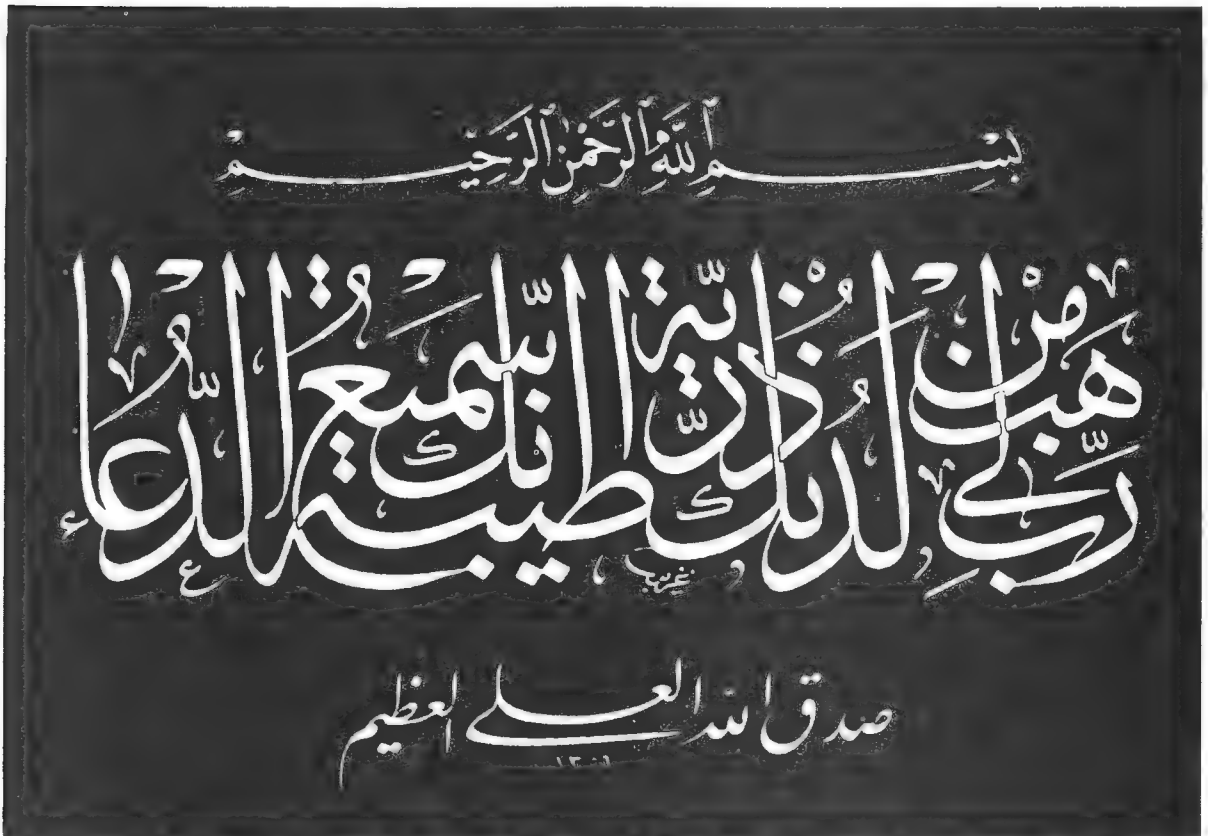 بِسْمِ ٱللَّهِ ٱلرَّحْمَٰنِ ٱلرَّحِيمِ
رَبِّ هَبْ لِي مِنْ لَدُنْكَ ذُرِّيَّةً طَيِّبَةً إِنَّكَ سَمِيعُ الدُّعَاءِ
صدق الله العلي العظيم